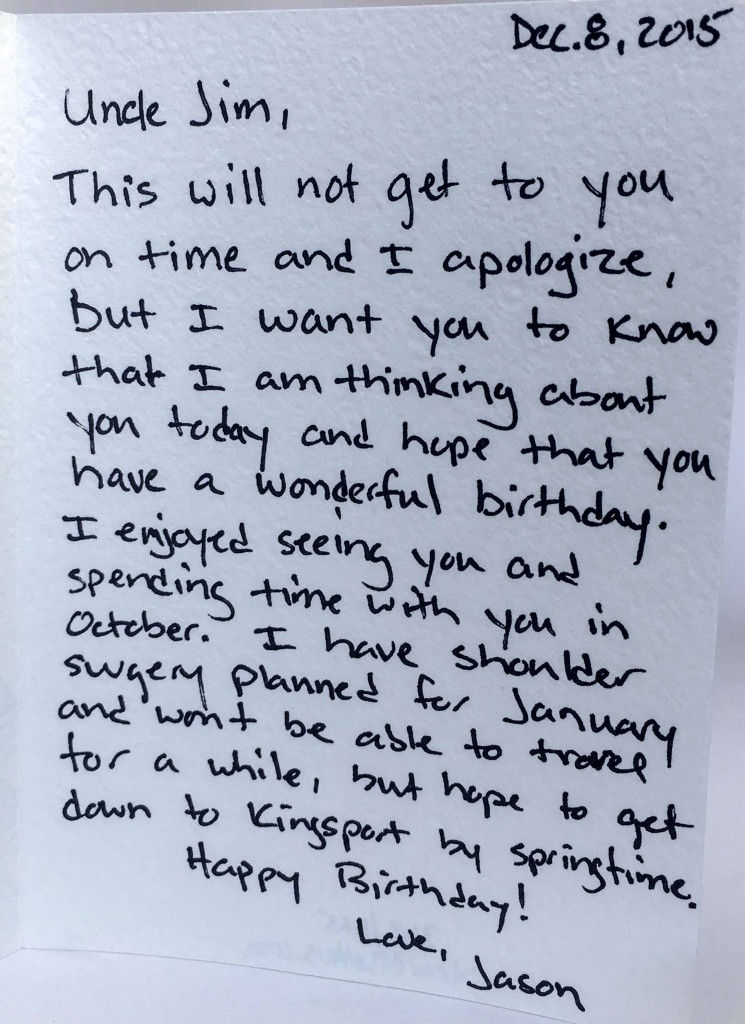 Dec. 8, 2015
Uncle Jim,
This will not get to you
on time and I apologize,
but I want you to know
that I am thinking about
you today and hope that you
have a wonderful birthday.
I enjoyed seeing you and
spending time with you in
October. I have shoulder
surgery planned for January
and won't be able to travel
for a while, but hope to get
down to Kingsport by springtime.
Happy Birthday!
Love,
Jason